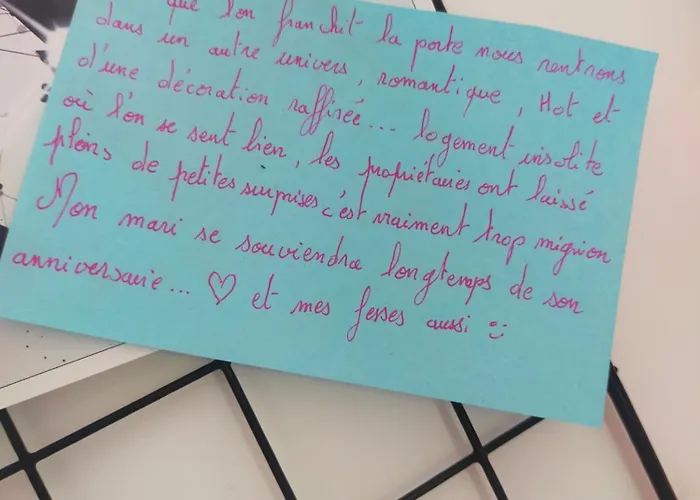 que l'on franchit la porte nous rentrons
dans un autre univers, romantique, Hot et
d'une décoration raffinée... logement insolite
où l'on se sent bien, les propriétaires ont laissé
pleins de petites surprises c'est vraiment trop mignon
Mon mari se souviendra longtemps de son
anniversaire... ♡ et mes fesses aussi :)